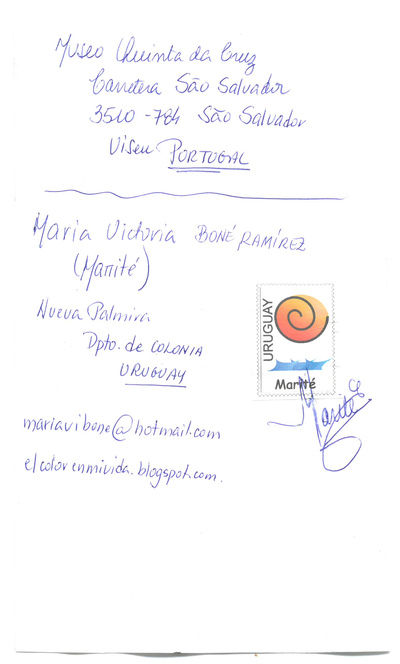 Museo Quinta da Cruz
Carretera São Salvador
3510-784 São Salvador
Viseu PORTUGAL
Maria Victoria BONÉ RAMÍREZ
(Marité)
Nueva Palmira
Dpto. de COLONIA
URUGUAY
URUGUAY
Marité
Marité
mariavibone@hotmail.com
elcolorenmivida.blogspot.com.